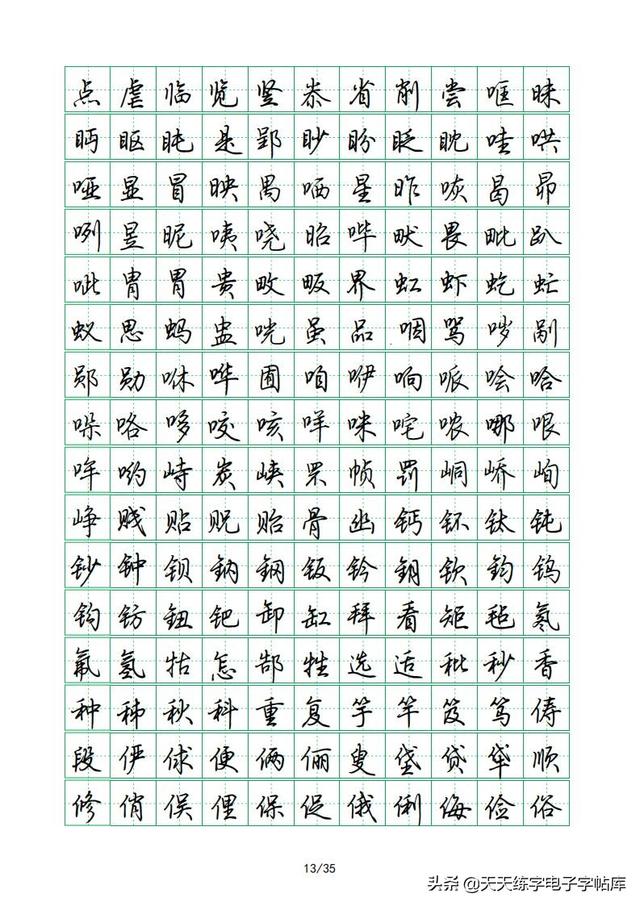 点虐临览竖尜省削尝哐昧
眄眍盹是郢眇盼眨眈哇哄
哑显冒映禺哂星昨咴曷昴
咧昱昵咦哓昭哔畎畏毗趴
呲胄胃贵畋畈界虹虾虼虻
蚁思蚂盅咣虽品咽骂哕剐
郧勋咻哗囿咱咿响哌哙哈
哚咯哆咬咳咩咪咤哝哪哏
哞哟峙炭峡罘帧罚峒峤峋
峥贱贴贶贻骨幽钙钚钛钝
钞钟钡钠钢钣钤钥钦钧钨
钩钫钮钯卸缸拜看矩毡氡
氟氢牯怎郜牲选适秕秒香
种秭秋科重复竽竿笈笃俦
段俨俅便俩俪叟垡贷牮顺
修俏俣俚保促俄俐侮俭俗
13/35
头条 @天天练字电子字帖库